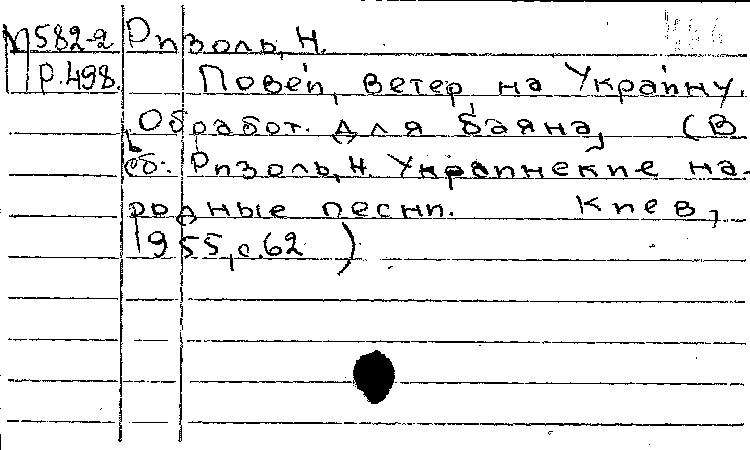 М582-2 Ризоль, Н.
Р.498. Повей, ветер, на Украину.
Обработ. для баяна, (В
сб: Ризоль, Н. Украинские на-
родные песни. Киев,
1955, с.62)